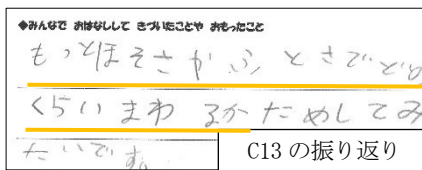 ◆みんなで おはなしして きづいたことや おもったこと
もっとほそさか ふとさでどの
くらいまわるかためしてみ
たいです。
C13の振り返り